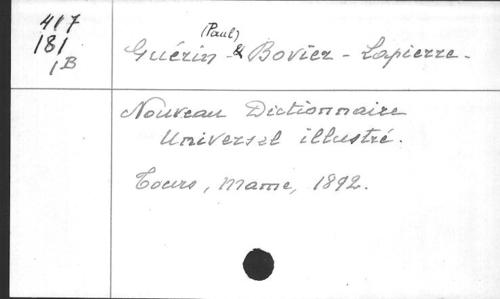 417
181
1B
(Paul)
Guérin & Bovier - Lapierre.
Nouveau Dictionnaire
Universel illustré.
Tours, Mame, 1892.